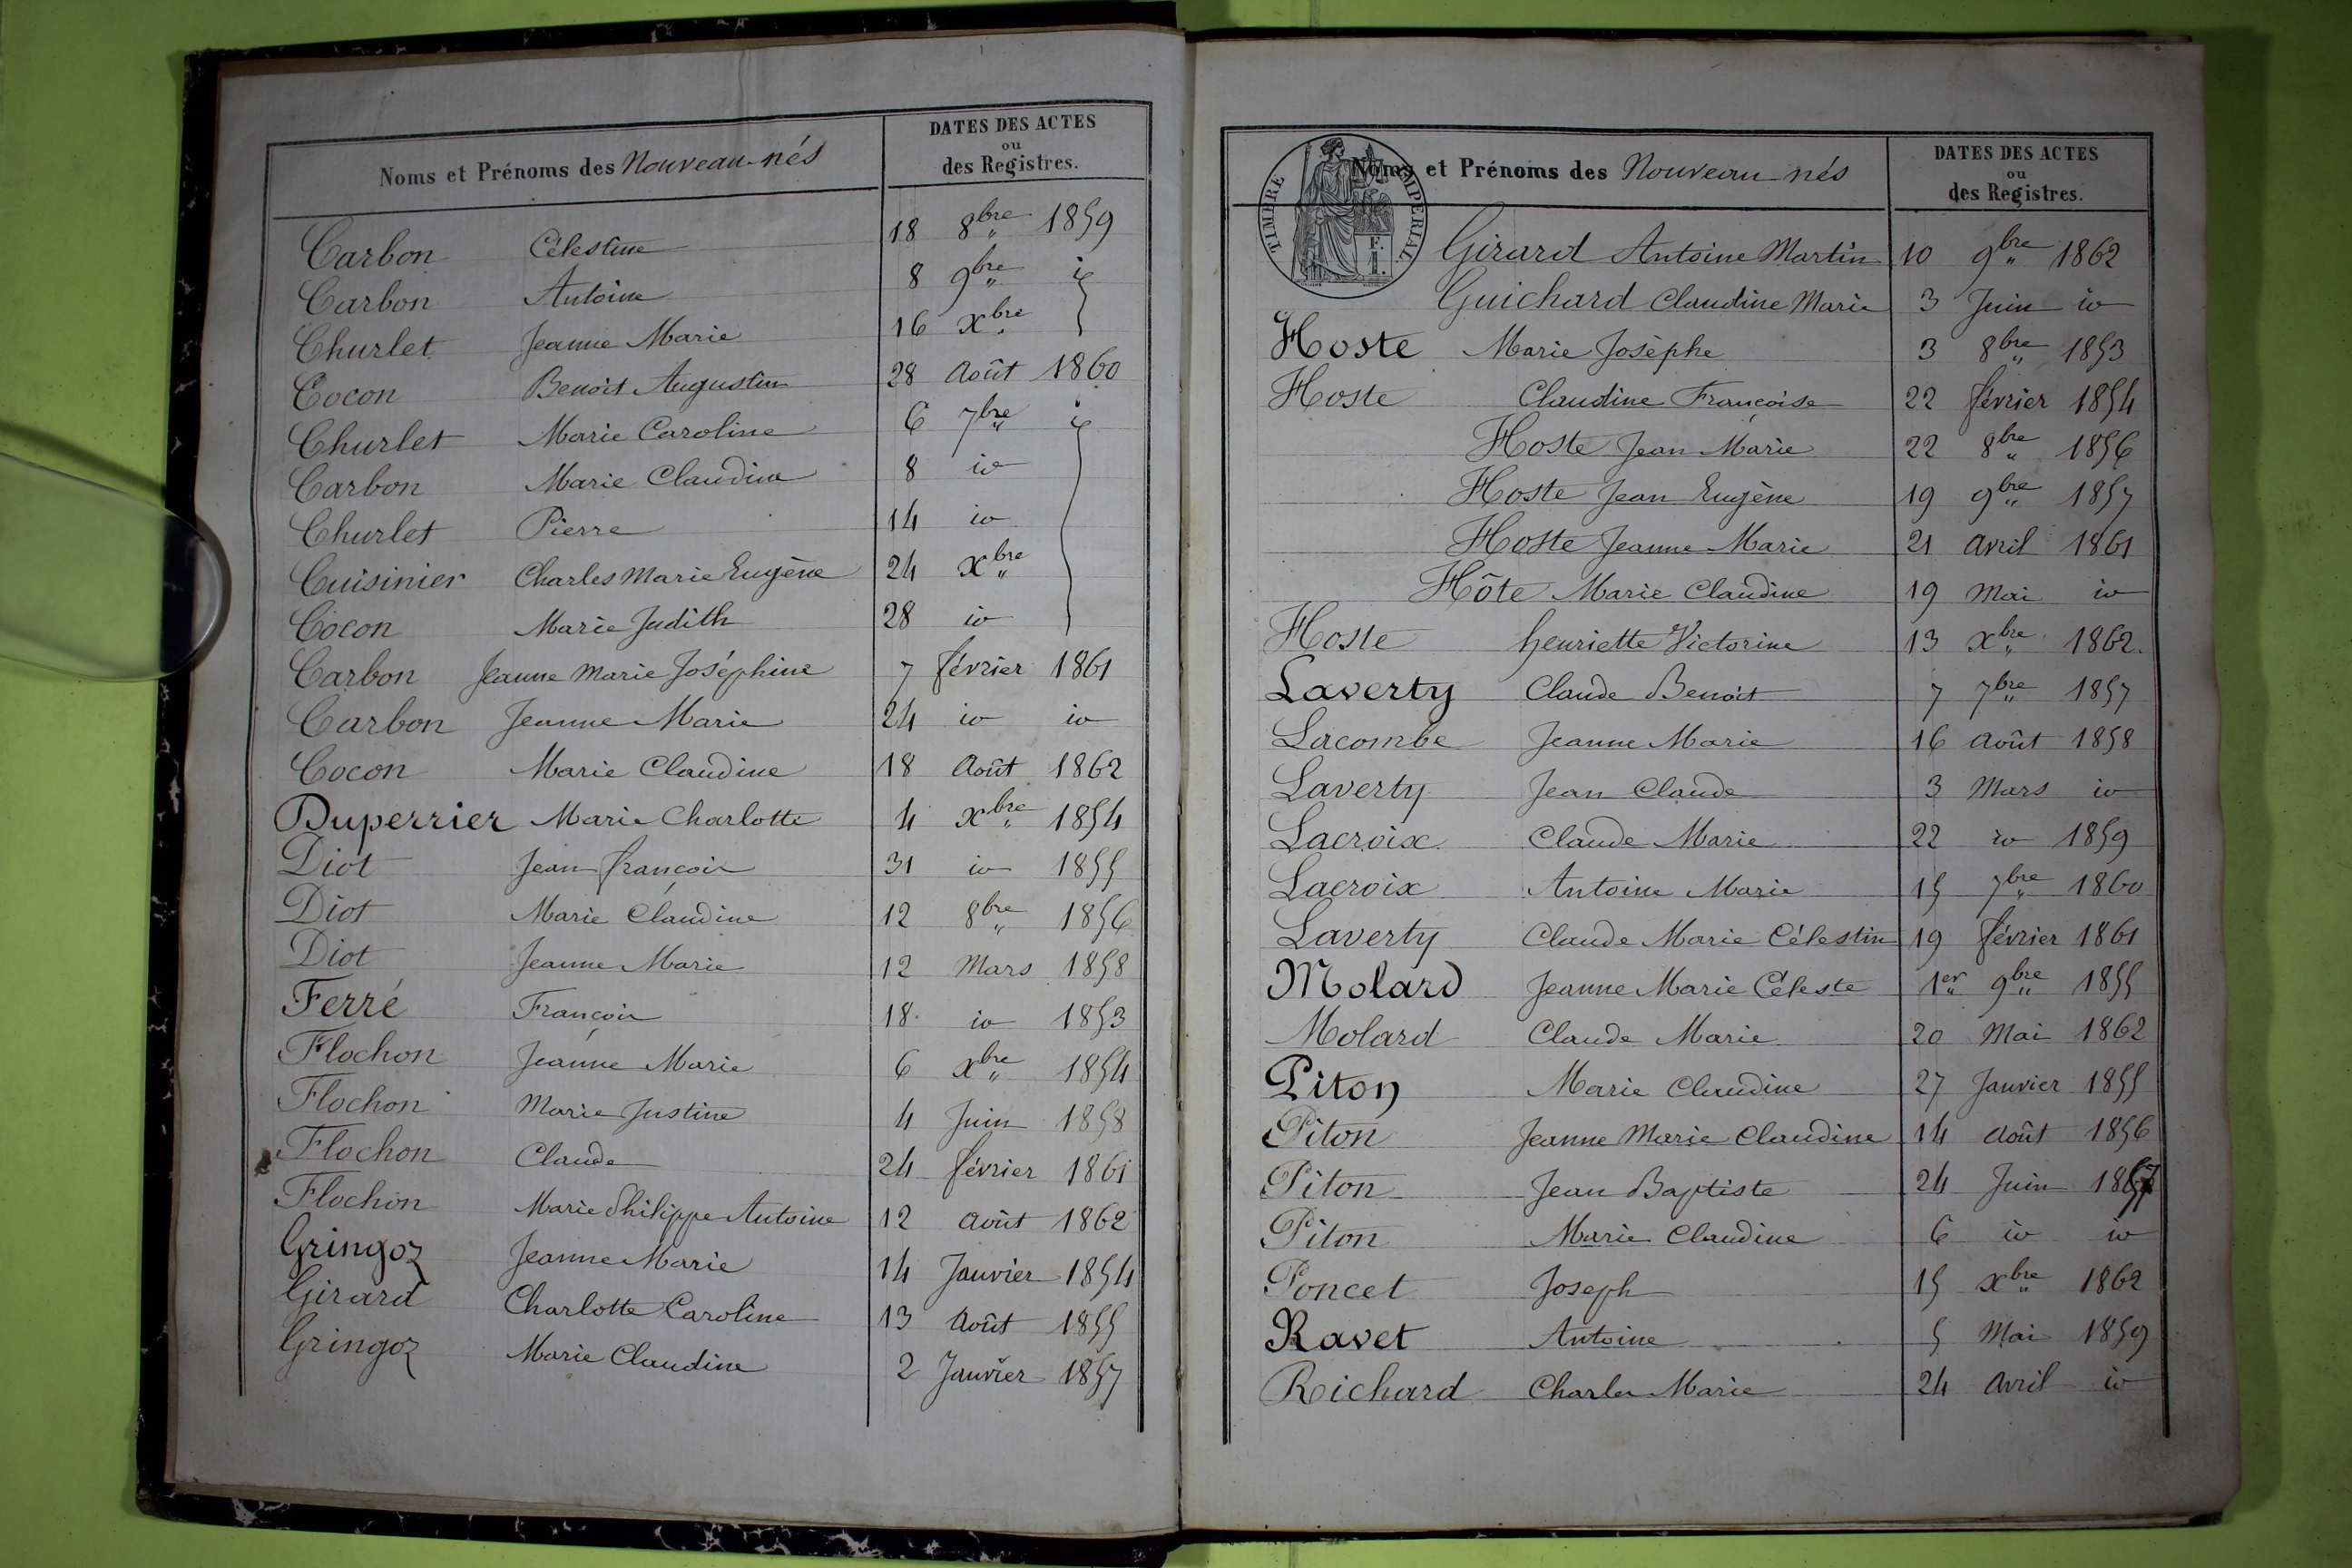 Noms et Prénoms des Nouveau-nés
DATES DES ACTES
ou
des Registres.
Carbon Célestine 18 8bre 1859
Carbon Antoine 8 9bre io
Churlet Jeanne Marie 16 xbre
Cocon Benoit Augustin 28 Août 1860
Churlet Marie Caroline 6 7bre io
Carbon Marie Claudine 8 io
Churlet Pierre 14 io
Cuisinier Charles Marie Eugène 24 xbre
Cocon Marie Judith 28 io
Carbon Jeanne Marie Joséphine 7 février 1861
Carbon Jeanne Marie 24 io io
Cocon Marie Claudine 18 Août 1862
Duperrier Marie Charlotte 4 xbre 1854
Diot Jean françois 31 io 1855
Diot Marie Claudine 12 8bre 1856
Diot Jeanne Marie 12 Mars 1858
Ferré François 18 io 1853
Flochon Jeanne Marie 6 xbre 1854
Flochon Marie Justine 4 Juin 1858
Flochon Claude 24 février 1861
Flochon Marie Philippe Antoine 12 Août 1862
Gringoz Jeanne Marie 14 Janvier 1854
Girard Charlotte Caroline 13 Août 1855
Gringoz Marie Claudine 2 Janvier 1857
TIMBRE IMPERIAL
F.
1.
Noms et Prénoms des Nouveau-nés
DATES DES ACTES
ou
des Registres.
Girard Antoine Martin 10 9bre 1862
Guichard Claudine Marie 3 Juin io
Hoste Marie Josèphe 3 8bre 1853
Hoste Claudine Françoise 22 février 1854
Hoste Jean Marie 22 8bre 1856
Hoste Jean Eugène 19 9bre 1857
Hoste Jeanne Marie 21 Avril 1861
Hôte Marie Claudine 19 Mai io
Hoste henriette Victorine 13 xbre 1862.
Laverty Claude Benoit 7 7bre 1857
Lacombe Jeanne Marie 16 Août 1858
Laverty Jean Claude 3 Mars io
Lacroix Claude Marie 22 io 1859
Lacroix Antoine Marie 15 7bre 1860
Laverty Claude Marie Célestin 19 février 1861
Molard Jeanne Marie Céleste 1er 9bre 1855
Molard Claude Marie 20 Mai 1862
Piton Marie Claudine 27 Janvier 1855
Piton Jeanne Marie Claudine 14 Août 1856
Piton Jean Baptiste 24 Juin
Piton Marie Claudine 6 io io
Poncet Joseph 15 xbre 1862
Ravet Antoine 5 Mai 1859
Richard Charles Marie 24 Avril io